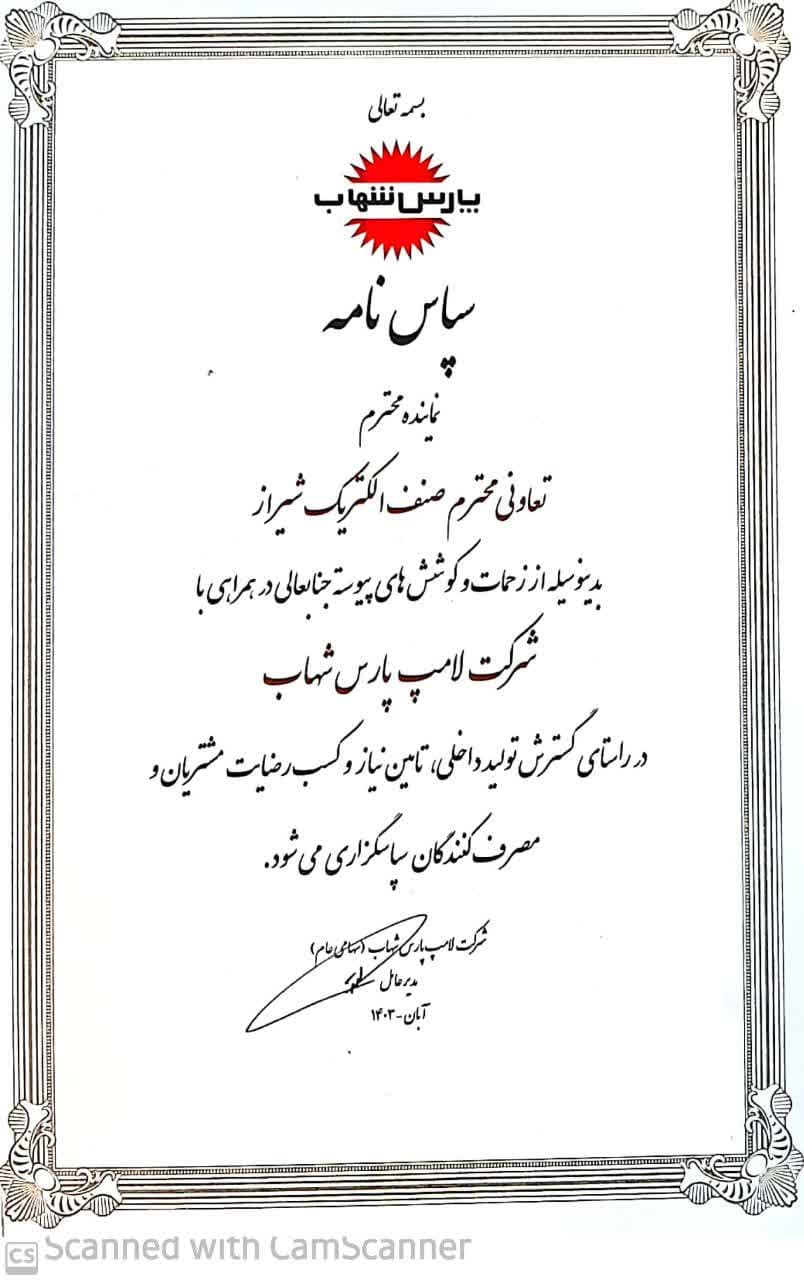 بسمه تعالی
پارس شهاب
سپاس نامه
نماینده محترم
تعاونی محترم صنف الکتریک شیراز
بدینوسیله از زحمات و کوشش های پیوسته جنابعالی در همراهی با
شرکت لامپ پارس شهاب
در راستای گسترش تولید داخلی، تامین نیاز و کسب رضایت مشتریان و
مصرف کنندگان سپاسگزاری می شود.
شرکت لامپ پارس شهاب (سهامی عام)
مدیرعامل
آبان-۱۴۰۳
CS Scanned with CamScanner